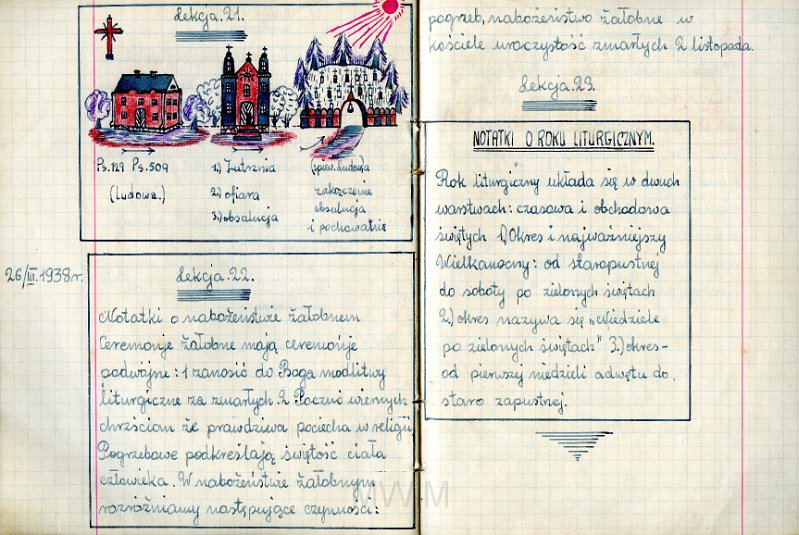 Lekcja.21.
Ps.129 Ps.509
(Ludowe.)
1) Jutrznia
2) ofiara
3) absolucja
(śpiew. Ludow)a
zakończenie
absolucja
i pochowanie
26/III.1938r.
Lekcja.22.
Notatki o nabożeństwie żałobnem
Ceremonje żałobne mają ceremonje
podwójne: 1 zanosić do Boga modlitwy
liturgiczne za zmarłych. 2 Pouczać wiernych
chrześcian że prawdziwa pociecha w religji
Pogrzebowe podkreślają świętość ciała
człowieka. W nabożeństwie żałobnym
rozróżniamy następujące czynności:
MWM
pogrzeb, nabożeństwo żałobne w
kościele uroczystość zmarłych 2 listopada.
Lekcja.23.
NOTATKI O ROKU LITURGICZNYM.
Rok liturgiczny układa się w dwuch
warstwach: czasowa i obchodowa
świętych 1) Okres i najważniejszy
Wielkanocny: od starapustnej
do soboty po zielonych świętach
2.) okres nazywa się "Niedziele
po zielonych świętach" 3.) okres-
od pierwszej niedzieli adwętu do
staro zapustnej.